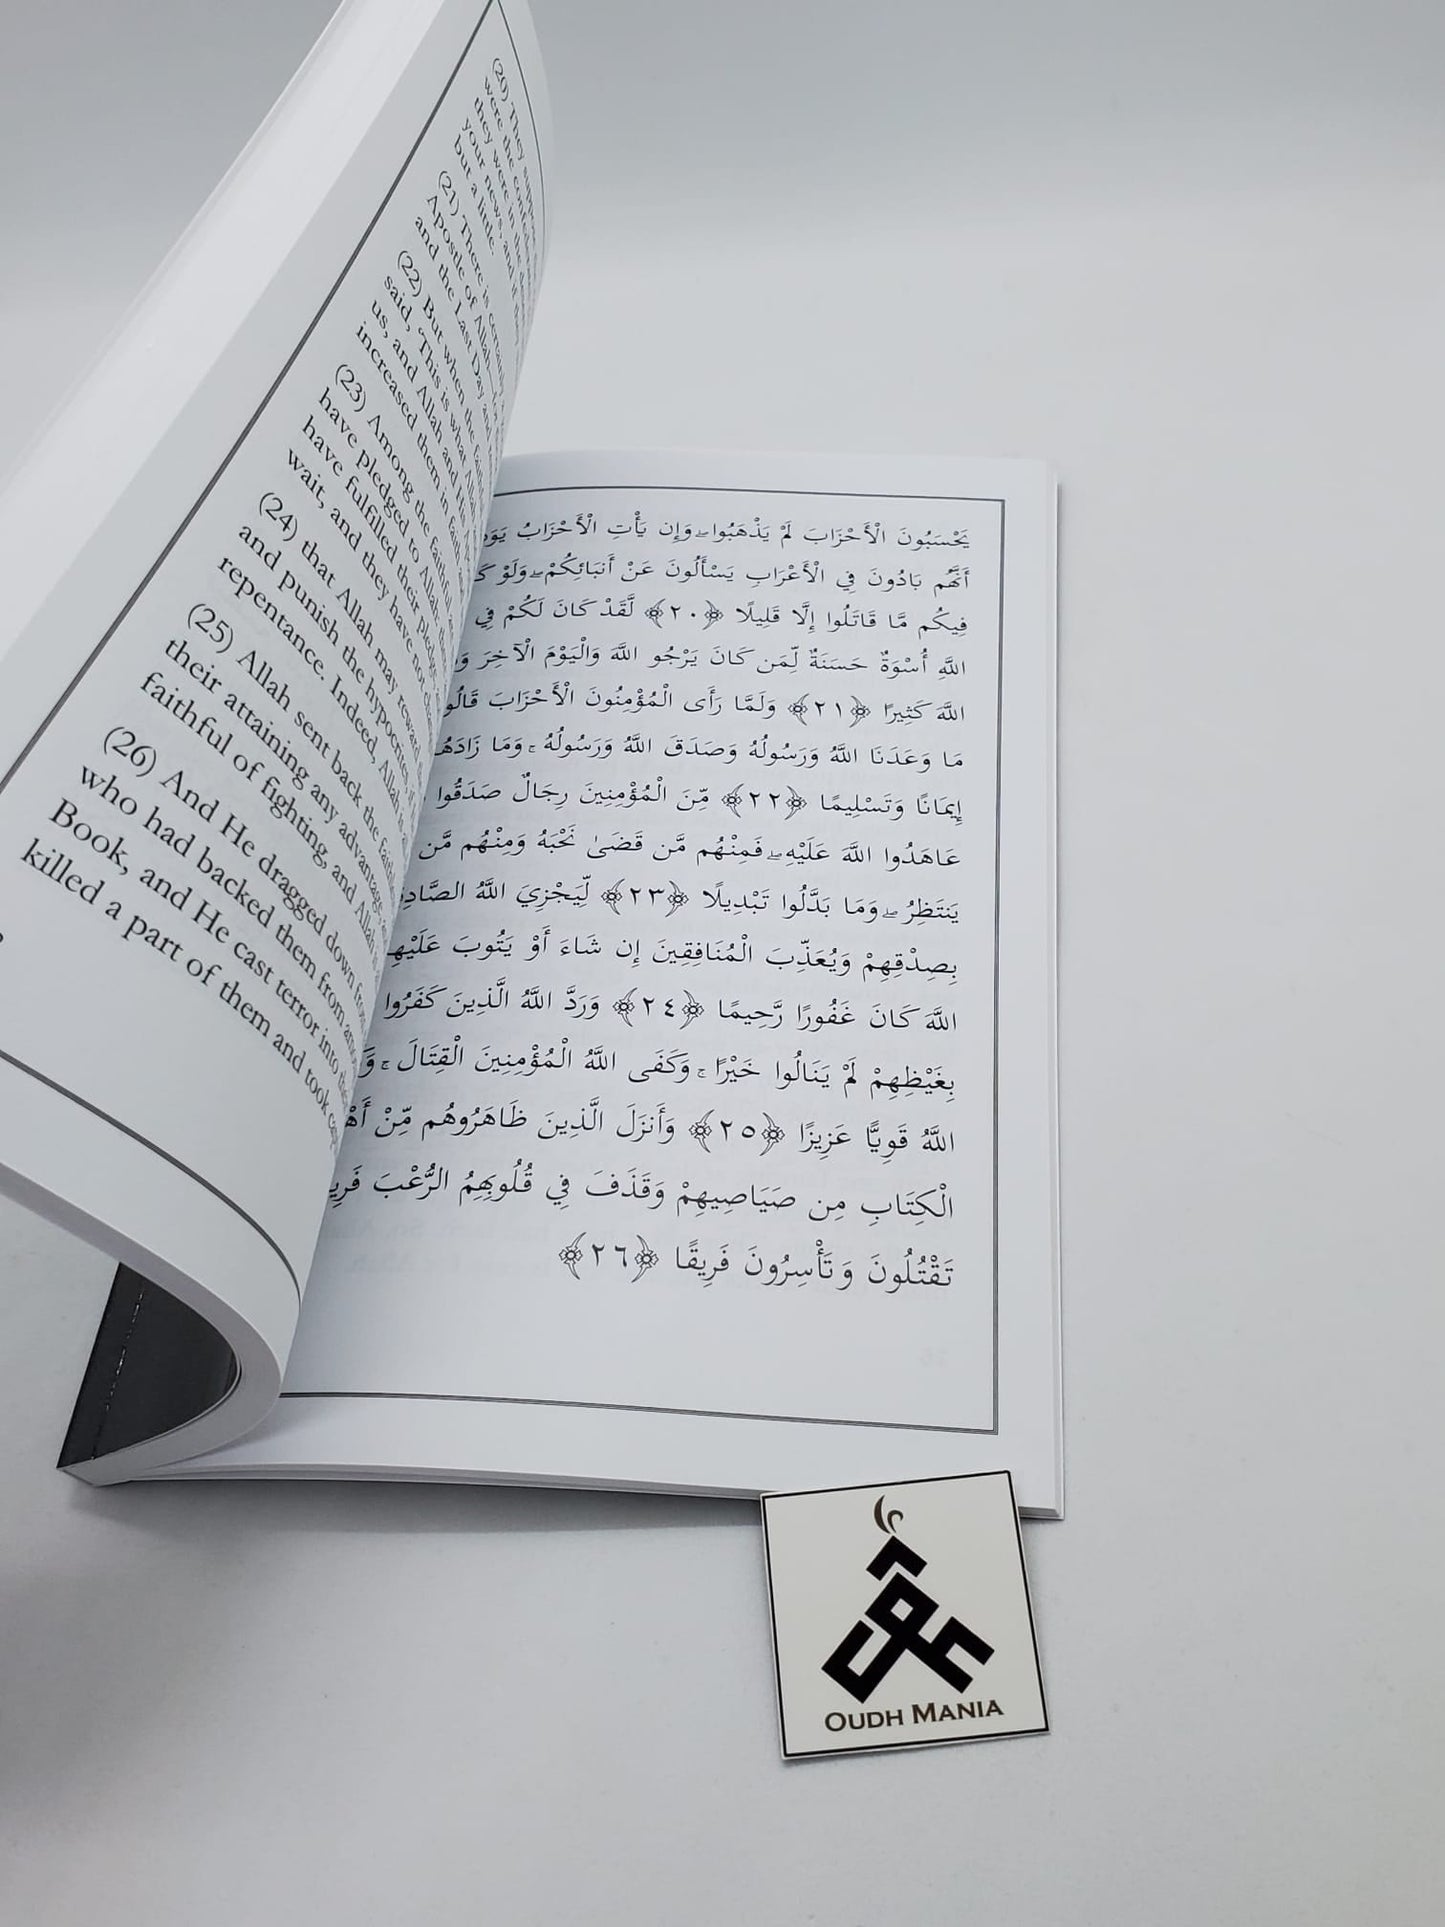 (20) They suppose
were the confede
they were in the
your news, and if they
but a little.
(21) There is certainly
Apostle of Allah—for
and the Last Day and
(22) But when the faith
said, ‘This is what Allah
us, and Allah and His
increased them in faith and
(23) Among the faithful
have pledged to Allah: the
have fulfilled their pledge
wait, and they have not
(24) that Allah may reward
and punish the hypocrites
repentance. Indeed, Allah is
(25) Allah sent back the faith
their attaining any advantage
faithful of fighting, and Allah is
(26) And He dragged down from
who had backed them from among
Book, and He cast terror into the
killed a part of them and took cap
يَحْسَبُونَ الْأَحْزَابَ لَمْ يَذْهَبُوا ۖ وَإِن يَأْتِ الْأَحْزَابُ
أَنَّهُم بَادُونَ فِي الْأَعْرَابِ يَسْأَلُونَ عَنْ أَنبَائِكُمْ ۖ وَلَوْ
فِيكُم مَّا قَاتَلُوا إِلَّا قَلِيلًا ﴿٢٠﴾ لَّقَدْ كَانَ لَكُمْ فِي
اللَّهِ أُسْوَةٌ حَسَنَةٌ لِّمَن كَانَ يَرْجُو اللَّهَ وَالْيَوْمَ الْآخِرَ
اللَّهَ كَثِيرًا ﴿٢١﴾ وَلَمَّا رَأَى الْمُؤْمِنُونَ الْأَحْزَابَ
مَا وَعَدَنَا اللَّهُ وَرَسُولُهُ وَصَدَقَ اللَّهُ وَرَسُولُهُ ۚ وَمَا
إِيمَانًا وَتَسْلِيمًا ﴿٢٢﴾ مِّنَ الْمُؤْمِنِينَ رِجَالٌ صَدَقُوا
عَاهَدُوا اللَّهَ عَلَيْهِ ۖ فَمِنْهُم مَّن قَضَىٰ نَحْبَهُ وَمِنْهُم مَّن
يَنتَظِرُ ۖ وَمَا بَدَّلُوا تَبْدِيلًا ﴿٢٣﴾ لِّيَجْزِيَ اللَّهُ
بِصِدْقِهِمْ وَيُعَذِّبَ الْمُنَافِقِينَ إِن شَاءَ أَوْ يَتُوبَ
اللَّهَ كَانَ غَفُورًا رَّحِيمًا ﴿٢٤﴾ وَرَدَّ اللَّهُ الَّذِينَ كَفَرُوا
بِغَيْظِهِمْ لَمْ يَنَالُوا خَيْرًا ۚ وَكَفَى اللَّهُ الْمُؤْمِنِينَ الْقِتَالَ ۚ
اللَّهُ قَوِيًّا عَزِيزًا ﴿٢٥﴾ وَأَنزَلَ الَّذِينَ ظَاهَرُوهُم مِّنْ
الْكِتَابِ مِن صَيَاصِيهِمْ وَقَذَفَ فِي قُلُوبِهِمُ الرُّعْبَ
تَقْتُلُونَ وَتَأْسِرُونَ فَرِيقًا ﴿٢٦﴾
OUDH MANIA